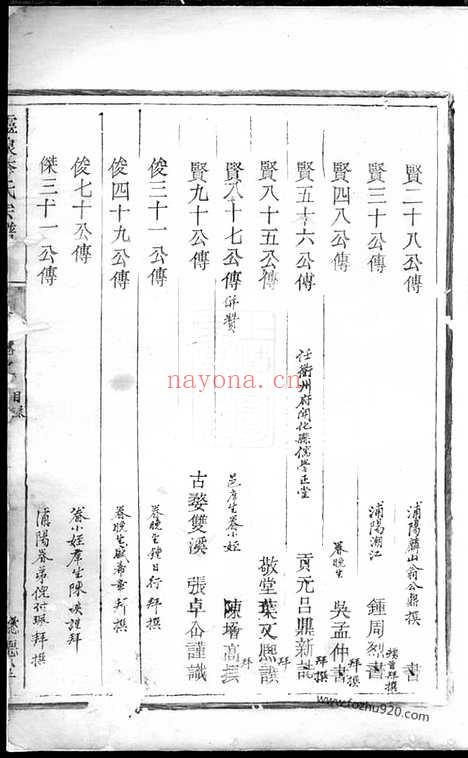 賢二十八公傳 浦陽 山翁公鼎撰 書
賢三十公傳 浦陽湖江 鍾周 書 拜撰
賢四八公傳 眷晚生 吳孟仲書 拜撰
賢五十六公傳 任衢州府開化縣儒學正堂 貢元呂鼎新誌 拜撰
賢八十五公傳 敬堂葉又熙譔 拜
賢八十七公傳 併贊 邑庠生眷小姪 陳增高撰 拜
賢九十公傳 古婺雙溪 張卓 謹識
俊三十一公傳 眷晚生鍾日行拜撰
俊四十九公傳 眷晚生 拜撰
俊七十公傳 眷小姪 生陳 謹拜
傑三十一公傳 浦陽眷弟倪 佩拜撰
氏宗譜
目錄
nayona.cn
www.fozhu920.com